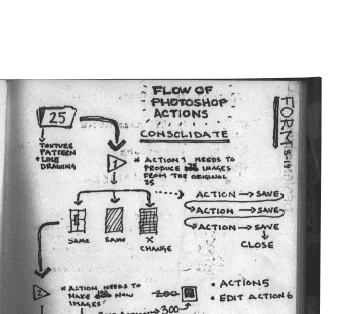 FLOW OF
PHOTOSHOP
ACTIONS
CONSOLIDATE
25
TEXTURE
PATTERN
+ LINE
DRAWING
1
* ACTION 1 NEEDS TO
PRODUCE IMAGES
FROM THE ORIGINAL
25
ACTION → SAVE
ACTION → SAVE
ACTION → SAVE
CLOSE
SAME
SAME
X
CHANGE
2
* ACTION NEEDS TO
MAKE NEW
IMAGES
200
300
• ACTION 5
• EDIT ACTION 6
FORM